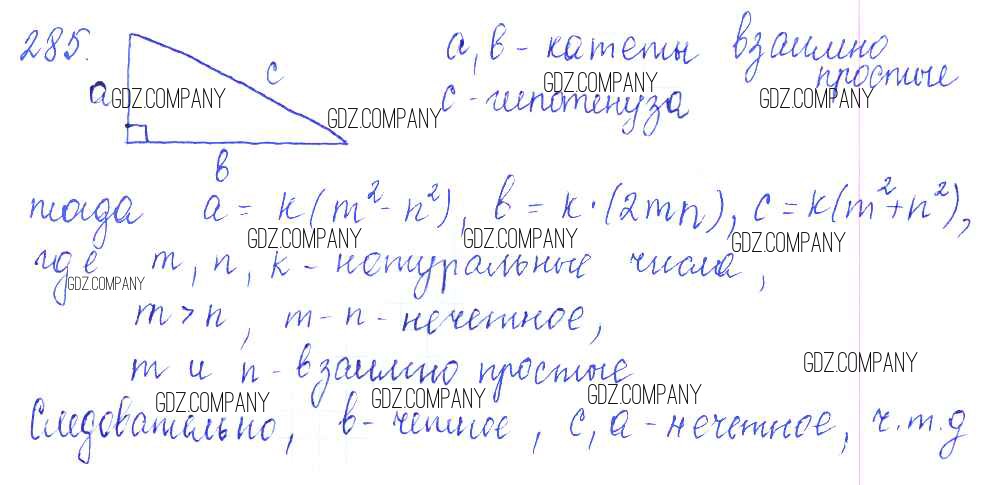 285. a, в - катеты взаимно простые
a GDZ.COMPANY c GDZ.COMPANY c - гипотенуза GDZ.COMPANY GDZ.COMPANY
в
тогда a = k(m² - n²), в = k·(2mn), c = k(m² + n²),
GDZ.COMPANY GDZ.COMPANY GDZ.COMPANY
где m, n, k - натуральные числа,
GDZ.COMPANY
m > n, m - n - нечетное,
m и n - взаимно простые
GDZ.COMPANY
GDZ.COMPANY GDZ.COMPANY GDZ.COMPANY
Следовательно, в - четное, c, a - нечетное, ч.т.д